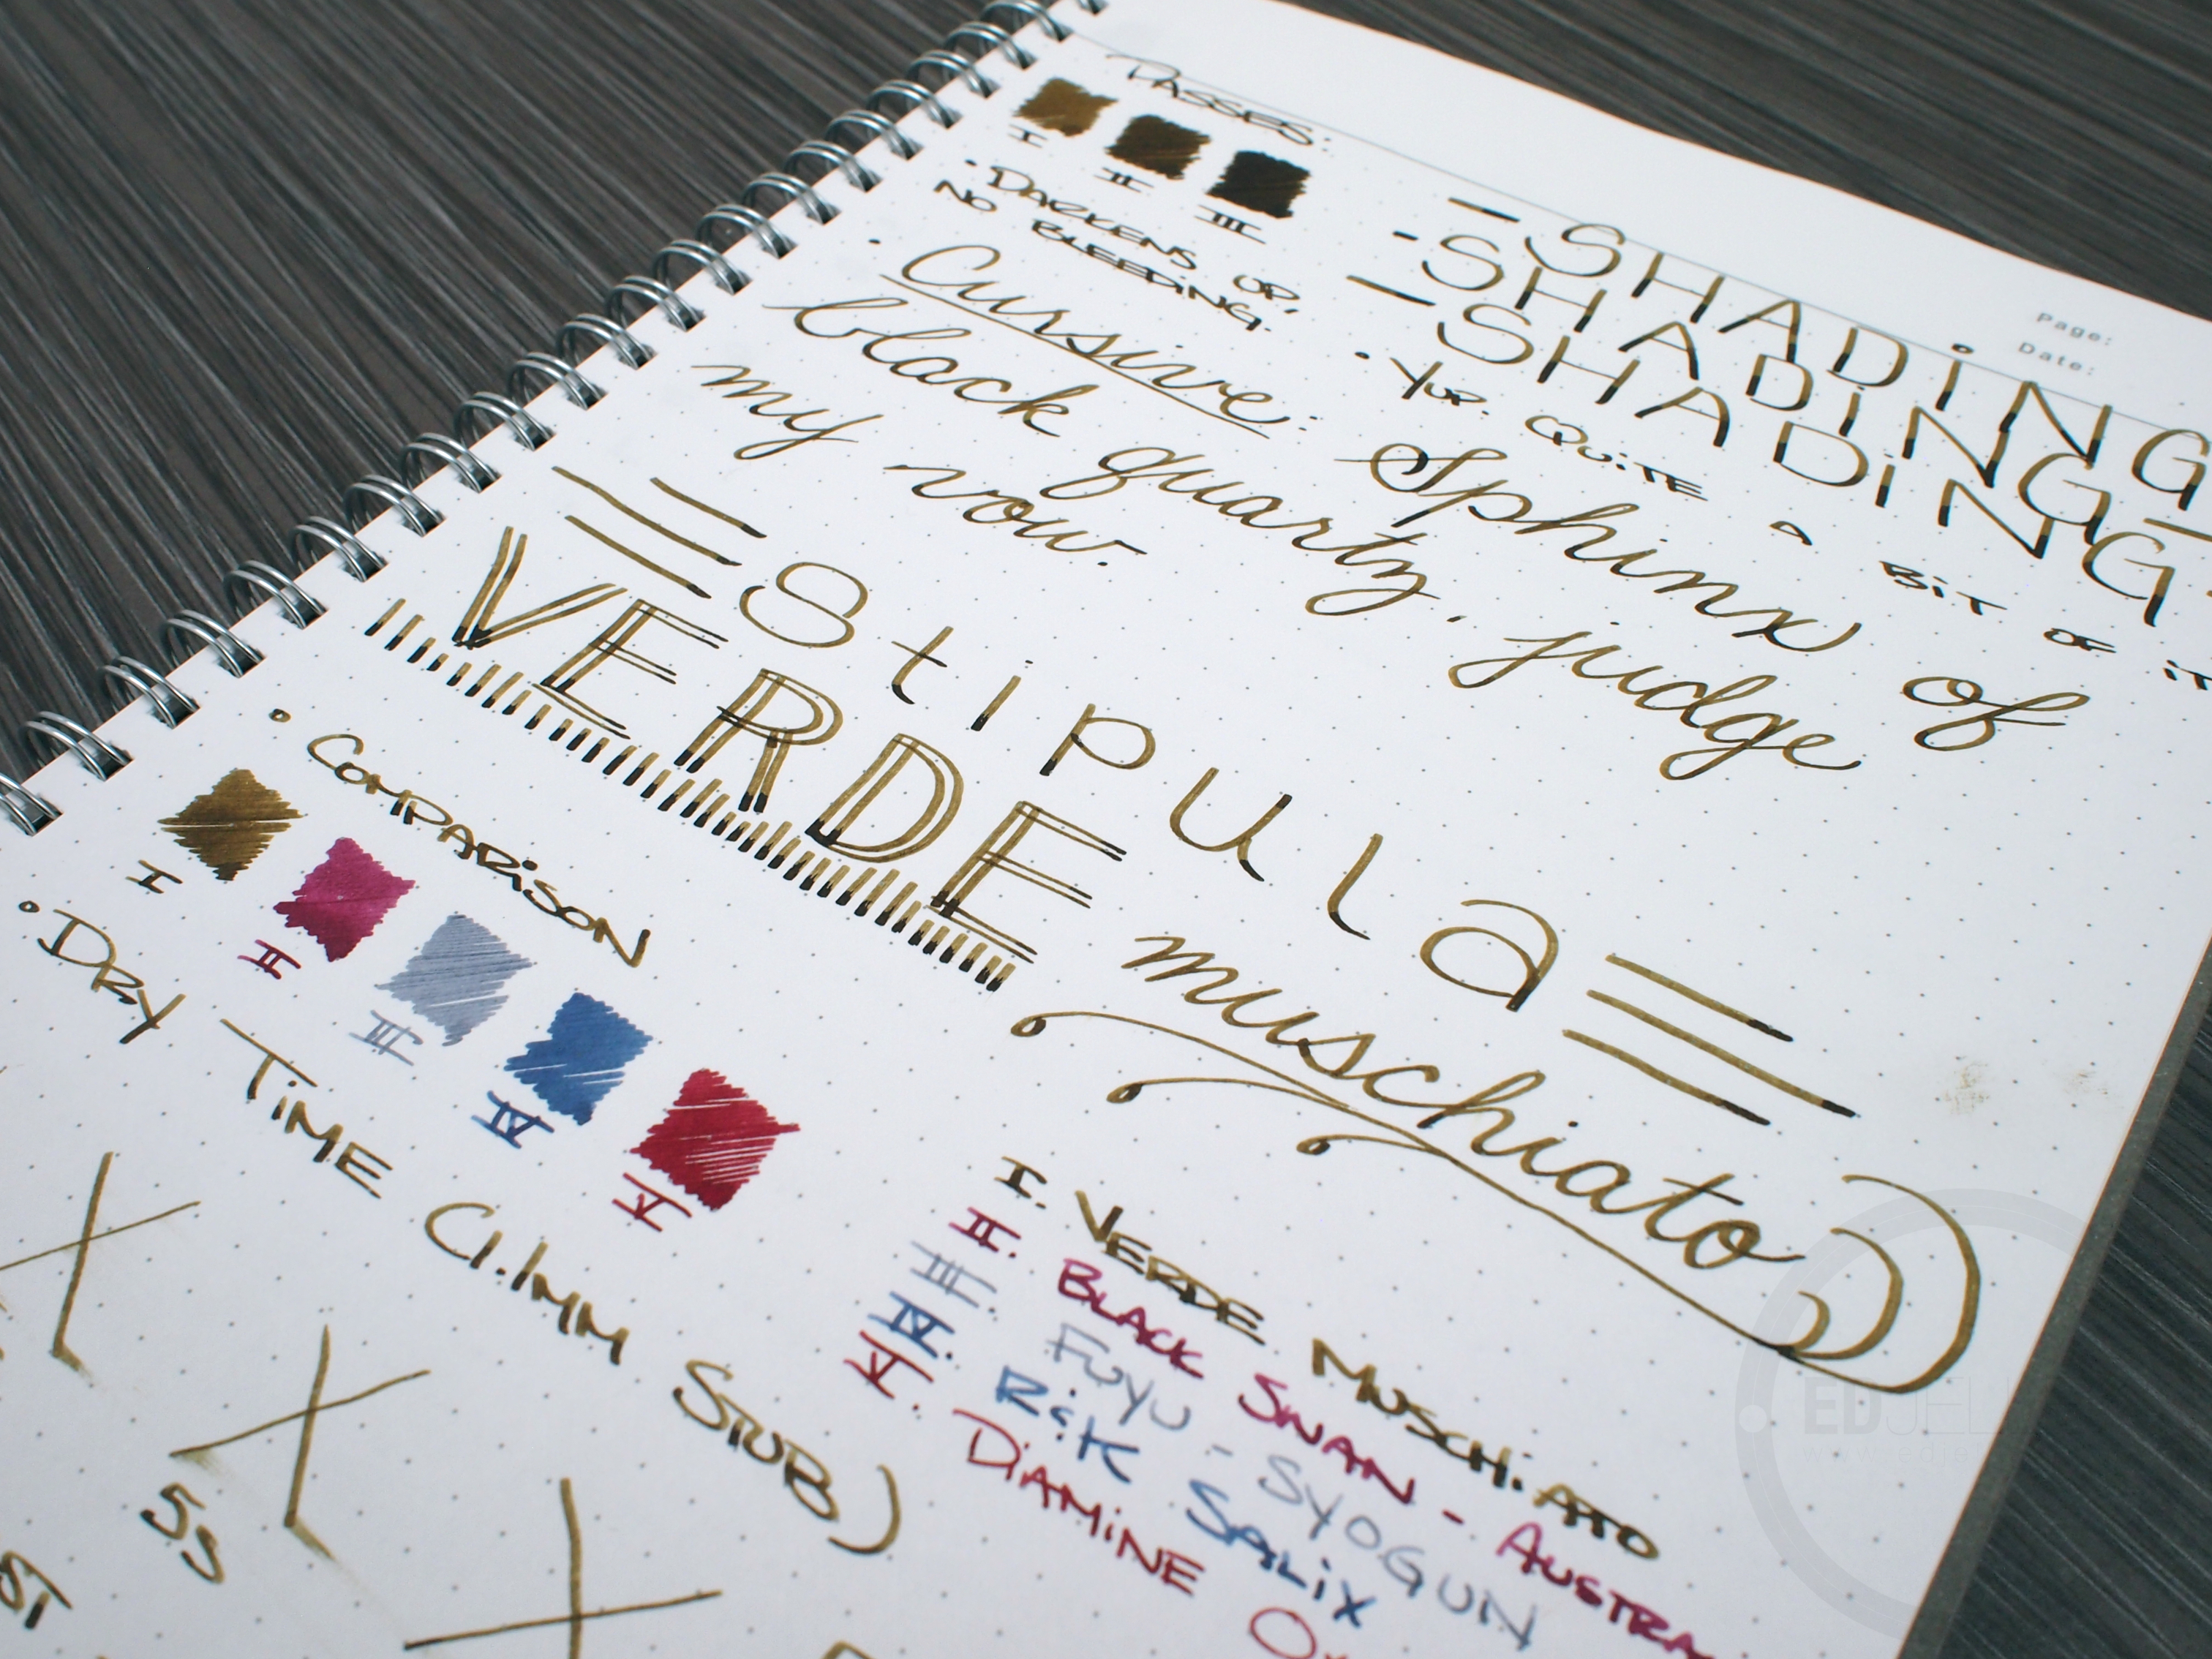 PASSES:
I II III
· DARKENS UP,
NO BLEEDING.
- SHADING
- SHADING -
- SHADING
· YUP. QUITE A BIT OF IT
Page:
Date:
· Cursive: Sphinx of
black quartz, judge
my vow.
Stipula
VERDE
muschiato
· COMPARISON
I II III IV V
I. VERDE MUSCHIATO
II. BLACK SWAN - AUSTRA
III. FUYU - SYOGUN
IV. R&K SALIX
V. DIAMINE
· DRY TIME (1.1MM STUB)
5s
EDJEL